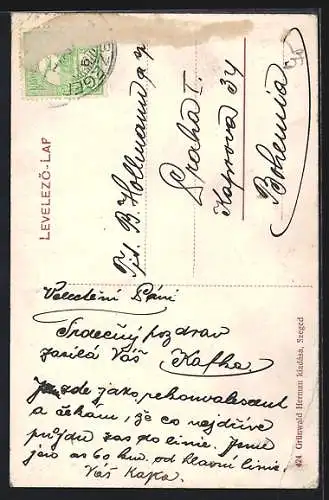 LEVELEZŐ-LAP
SZEGED
B. Hollmann a
Praha I.
Kaprova 34
Bohemia
Velectění Páni
Srdečný pozdrav
zasílá Váš Kafka
Jsem zde jako rekonvalescent
a čekám, že co nejdříve
přijdu zas do linie. Jsme
jen as 60 km. od hlavní linie.
Váš Kafka.
424 Grünwald Herman kiadása, Szeged